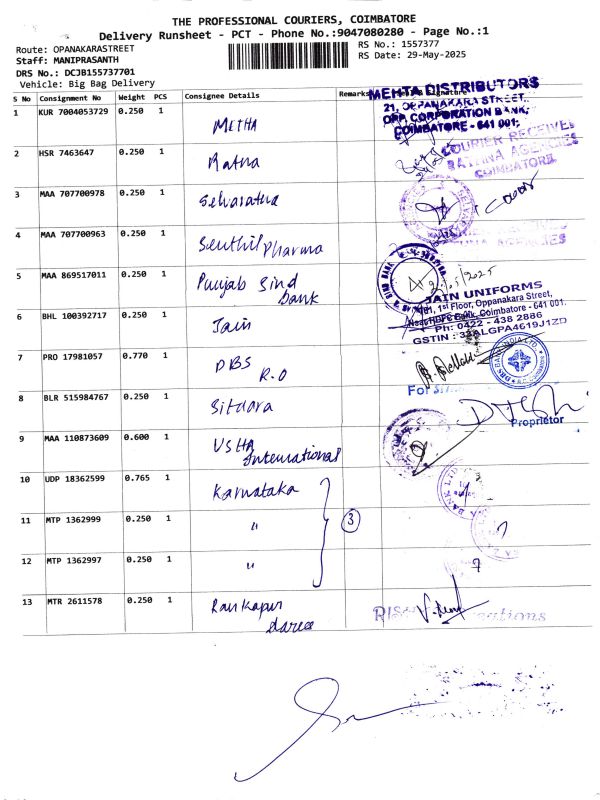 THE PROFESSIONAL COURIERS, COIMBATORE
Delivery Runsheet - PCT - Phone No.:9047080280 - Page No.:1
Route: OPANAKARASTREET
RS No.: 1557377
Staff: MANIPRASANTH
RS Date: 29-May-2025
DRS No.: DCJB155737701
Vehicle: Big Bag Delivery
S No Consignment No Weight PCS Consignee Details Remarks
1 KUR 7004053729 0.250 1 METHA
MEHTA DISTRIBUTORS
21, OPPANAKARA STREET,
OPP. CORPORATION BANK,
COIMBATORE - 641 001.
2 HSR 7463647 0.250 1 Ratna
COURIER RECEIVED
RATHNA AGENCIES
COIMBATORE
3 MAA 707700978 0.250 1 Selvaratha
4 MAA 707700963 0.250 1 Senthil Pharma
5 MAA 869517011 0.250 1 Punjab Sind
Bank
6 BHL 100392717 0.250 1 Jain
JAIN UNIFORMS
1st Floor, Oppanakara Street,
Near HDFC Bank, Coimbatore - 641 001.
Ph: 0422 - 438 2886
GSTIN : 33ALGPA4619J1ZD
7 PRO 17981057 0.770 1 DBS
R.O
8 BLR 515984767 0.250 1 Sitdara
Proprietor
9 MAA 110873609 0.600 1 USHA
International
10 UDP 18362599 0.765 1 Karnataka
11 MTP 1362999 0.250 1 "
3
12 MTP 1362997 0.250 1 "
13 MTR 2611578 0.250 1 Ramkapur